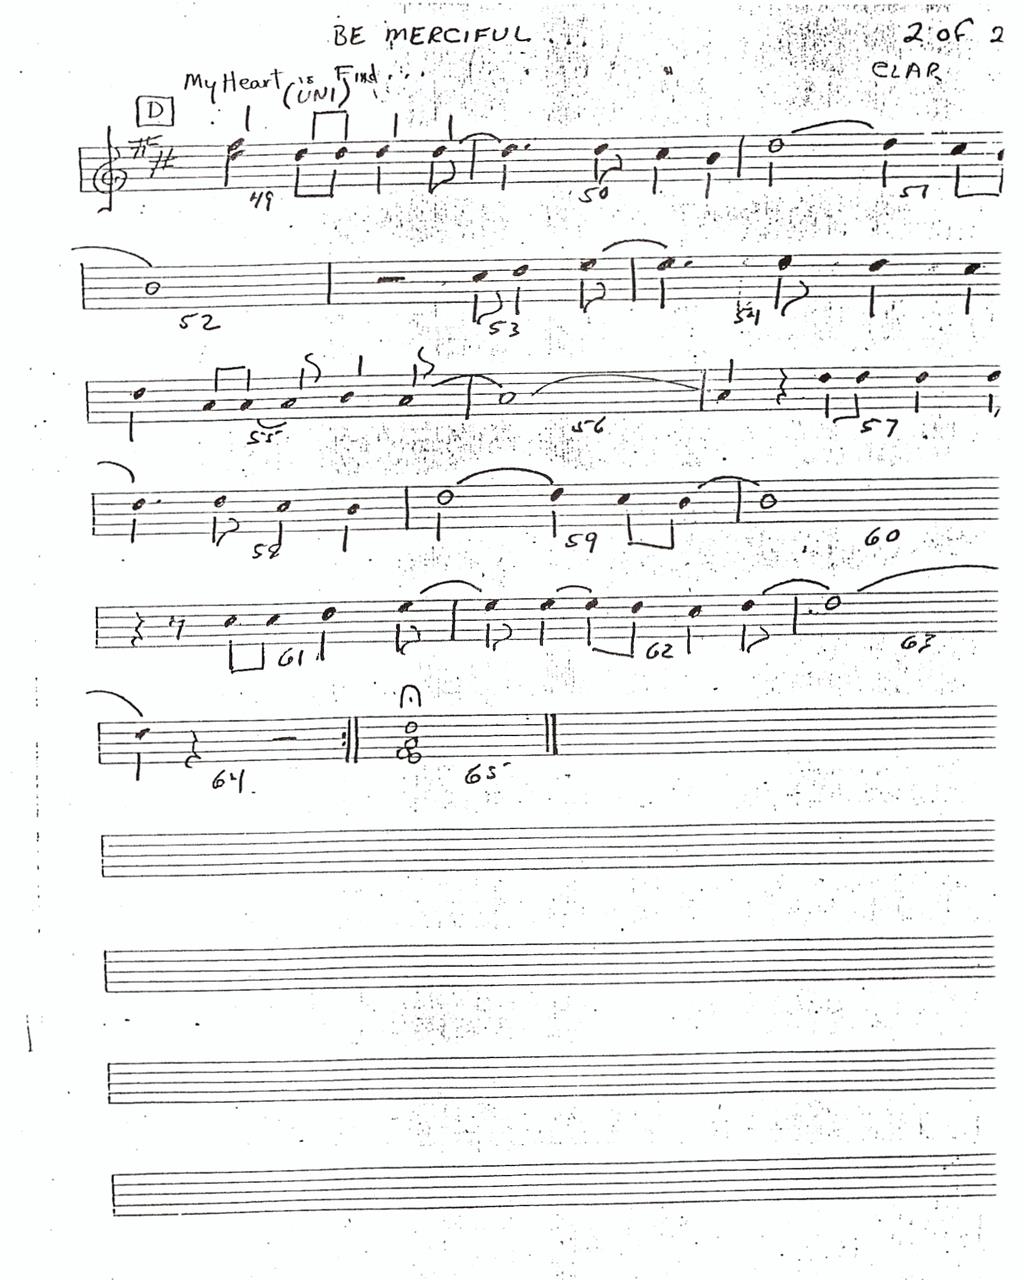 BE MERCIFUL...
2 of 2
CLAR
My Heart is Fixd...
(UNI)
D
49
50
51
52
53
54
55
56
57
58
59
60
61
62
63
64.
65